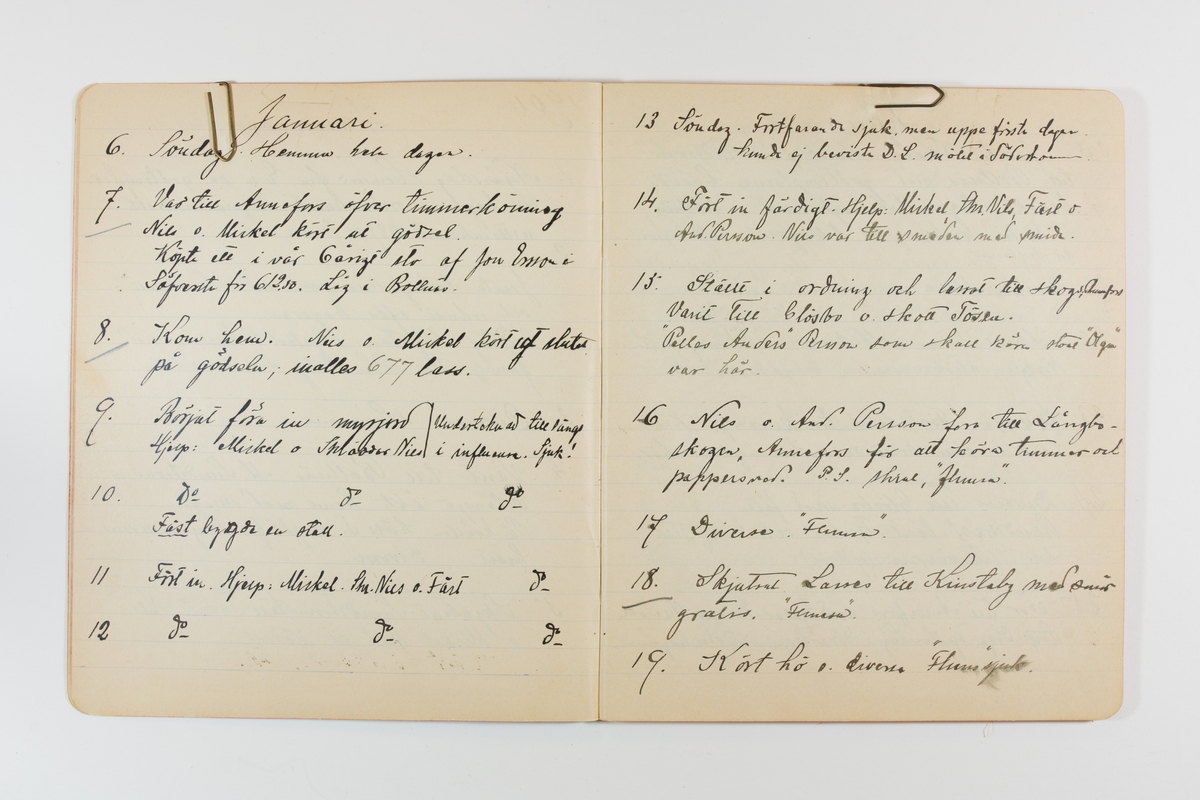 Januari.
6. Söndag. Hemma hela dagen.
7. Var till Annefors öfver timmerkörning
Nils o. Mickel kört ut gödsel.
Köpte ett i vår 6årigt sto af Jon Ersson i
Söfversta för 612.50. Låg i Bollnäs.
8. Kom hem. Nils o. Mickel kört ut slutet
på gödseln, inalles 677 lass.
9. Börjat föra in myrjord
Hjelp: Mickel o Nils
Undertecknad till sängs
i influensa. Sjuk!
10. Do do do
Fäst byggde en stall.
11 Fört in. Hjelp: Mickel. Sm. Nils o. Fäst do
12 do do do
13 Söndag. Fortfarande sjuk, men uppe första dagen
kunde ej bevista D.L. mötet i Söderhamn
14. Fört in färdigt. Hjelp: Mickel Sm Nils, Fäst o.
And. Persson. Nils var till smeden med smide.
15. Ställt i ordning och lassat till skogs, Annefors
Varit till Glösbo o. skott Tösen.
"Pelles Anders" Persson som skall köra stoet "Olga"
var här.
16 Nils o. And. Persson fora till Långbo-
skogen, Annefors för att köra timmer och
pappersved. P.S. "flunsa".
17 Diverse. "Flunsa".
18. Skjutsat Lasses till Kinstaby med smör
gratis. "Flunsa".
19. Kört hö o. diverse "Fluns"sjuk.